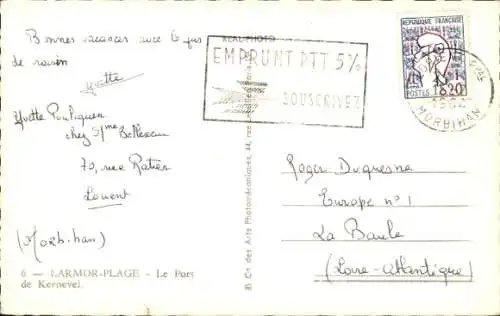 Bonnes vacances avec le jus
de raisin
Yvette
Yvette Pouliquen
chez Mme Belleveau
70, rue Ratier
Lorient
(Morbihan)
6 — LARMOR-PLAGE - Le Port
de Kernevel.
REAL-PHOTO
EMPRUNT PTT 5%
SOUSCRIVEZ
Cie des Arts Photomécaniques, 44, rue
REPUBLIQUE FRANÇAISE
POSTES 0,20
MORBIHAN
Roger Duquesne
Europe n° 1
La Baule
(Loire-atlantique)